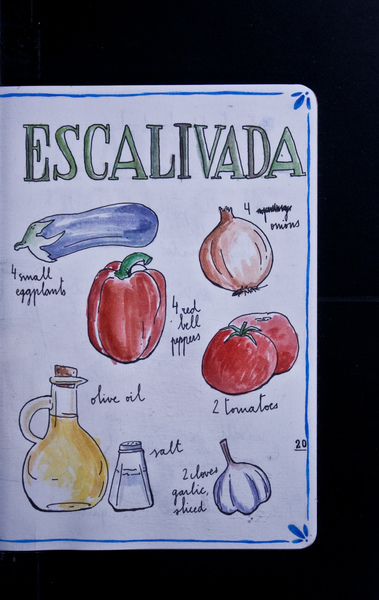 ESCALIVADA
4
onions
4 small
eggplants
4 red
bell
peppers
2 tomatoes
olive oil
salt
20
2 cloves
garlic,
sliced